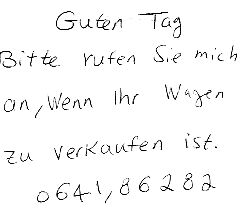 Guten Tag
Bitte rufen Sie mich
an, Wenn Ihr Wagen
zu verkaufen ist.
0641,86282